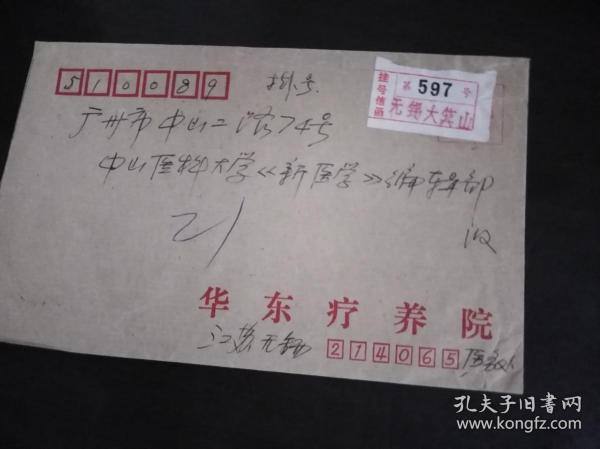 510089
挂号
挂号信函
第 597 号
无锡大箕山
广州市中山二路74号
中山医科大学《新医学》编辑部
收
21
华东疗养院
江苏无锡
214065
孔夫子旧书网
www.kongfz.com